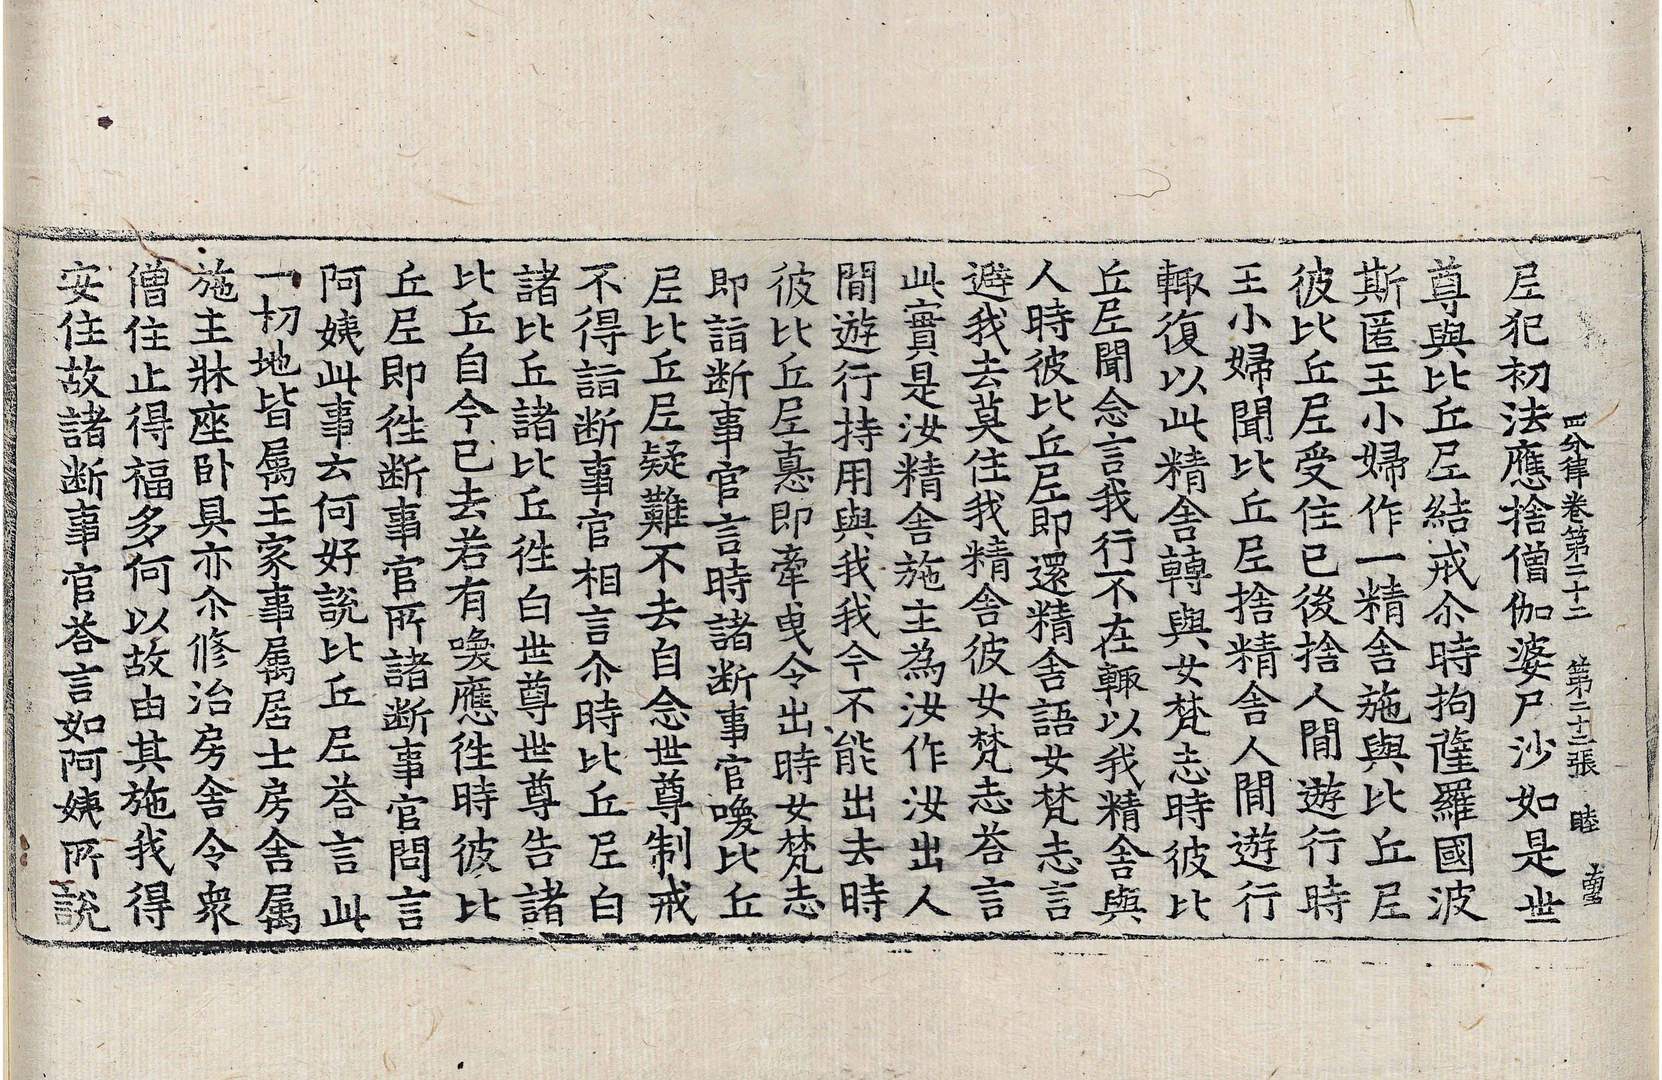 四分律卷第二十二 第二十三張 睦
尼犯初法應捨僧伽婆尸沙如是世
尊與比丘尼結戒尒時拘薩羅國波
斯匿王小婦作一精舍施與比丘尼
彼比丘尼受住已後捨人間遊行時
王小婦聞比丘尼捨精舍人間遊行
輙復以此精舍轉與女梵志時彼比
丘尼聞念言我行不在輙以我精舍與
人時彼比丘尼即還精舍語女梵志言
避我去莫住我精舍彼女梵志荅言
此實是汝精舍施主為汝作汝出人
間遊行持用與我我今不能出去時
彼比丘尼恚即牽曳令出時女梵志
即詣断事官言時諸断事官喚比丘
尼比丘尼疑難不去自念世尊制戒
不得詣断事官相言尒時比丘尼白
諸比丘諸比丘徃白世尊世尊告諸
比丘自今已去若有喚應徃時彼比
丘尼即徃断事官所諸断事官問言
阿姨此事云何好說比丘尼荅言此
一切地皆属王家事属居士房舍属
施主牀座卧具亦尒修治房舍令衆
僧住止得福多何以故由其施我得
安住故諸断事官荅言如阿姨所說